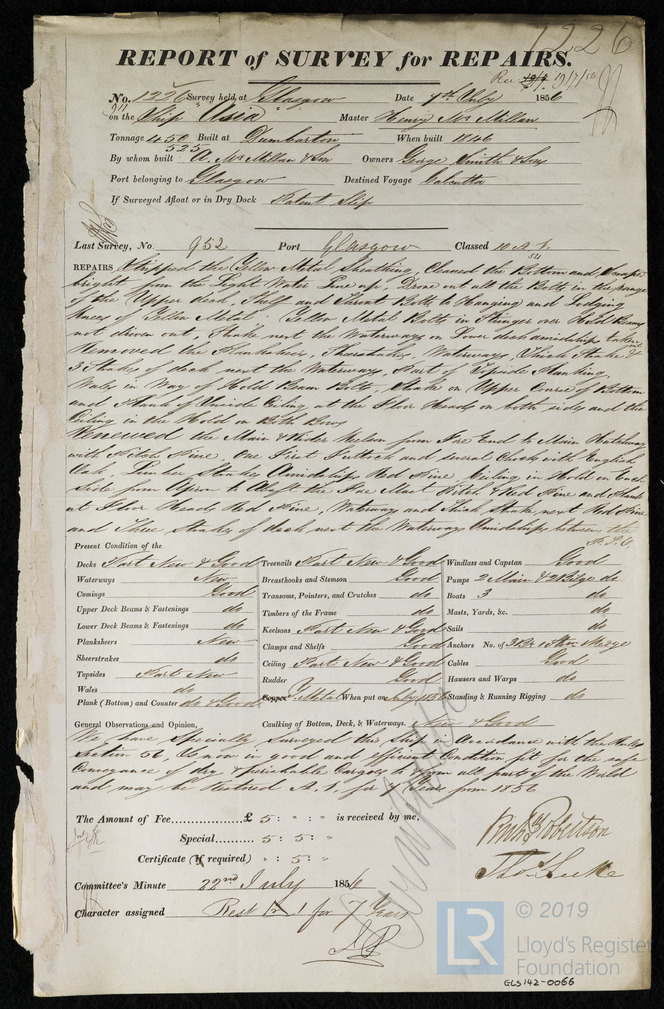 1226
REPORT of SURVEY for REPAIRS.
Rec 19/7/56
No. 1226 Survey held at Glasgow Date 7th July 1856
on the Ship "Asia" Master Henry McMillan
Tonnage 450 Built at Dumbarton When built 1846
525
By whom built A. McMillan & Son Owners George Smith & Sons
Port belonging to Glasgow Destined Voyage Calcutta
If Surveyed Afloat or in Dry Dock Patent Slip
Last Survey, No. 952 Port Glasgow Classed 10 A 1.
REPAIRS Stripped the Yellow Metal Sheathing, Cleaned the Bottom and Scraped
bright from the Light Water Line up, Drove out all the Bolts in the range
of the Upper deck, Shelf and Throat Bolts to Hanging and Lodging
Knees of Yellow Metal. Yellow Metal Bolts in Stringer over Hold Beams
not driven out, Strake next the Waterways on Lower deck amidships taken out
Removed the Planksheers, Waterways, Thick Strake &
3 Strakes of deck next the Waterways, Part of Topside Planking,
Wales in Way of Hold Beam Bolts, Strake on Upper Course of Bottom
and Plank of Inside Ceiling at the Floor Heads on both sides and the
Ceiling in the Hold on Both Bows
Renewed the Main & Rider Keelson from Fore End to Main Hatchway
with Pitch Pine, One First Futtock and several Chocks with English
Oak Limber Strakes Amidships Red Pine, Ceiling in Hold on Each
Side from Apron to Abaft the Fore Mast Pitch & Red Pine and Plank
at Floor Heads Red Pine, Waterway and thick Strake next Red Pine
and Three Strakes of deck next the Waterway Amidships between the
P.T.O
Present Condition of the
Decks Part New & Good Treenails Part New & Good Windlass and Capstan Good
Waterways New Breasthooks and Stemson Good Pumps 2 Main & 2 Bilge do
Comings Good Transoms, Pointers, and Crutches do Boats 3 do
Upper Deck Beams & Fastenings do Timbers of the Frame do Masts, Yards, &c. do
Lower Deck Beams & Fastenings do Keelsons Part New & Good Sails do
Planksheers New Clamps and Shelfs Good Anchors No. of 3 Br. 1 Strm. Kedge
Sheerstrakes do Ceiling Part New & Good Cables Good
Topsides Part New Rudder Good Hawsers and Warps do
Wales do Copper Y. Metal When put on July 1856 Standing & Running Rigging do
Plank (Bottom) and Counter do & Good
General Observations and Opinion, Caulking of Bottom, Deck, & Waterways. New & Good
We have Specially Surveyed this Ship in Accordance with the Rules
Section 56, Is now in good and efficient Condition fit for the safe
Conveyance of dry & perishable Cargoes to & from all parts of the World
and may be Restored A.1. for 7 Years from 1856
The Amount of Fee £ 5 : " : " is received by me,
Special 5 : 5 : "
Certificate (If required) " : 5 : "
Robertson
Committee's Minute 22nd July 1856
Character assigned Rest A 1 for 7 Years
© 2019
LR
Lloyd's Register
Foundation
GLS142-0066